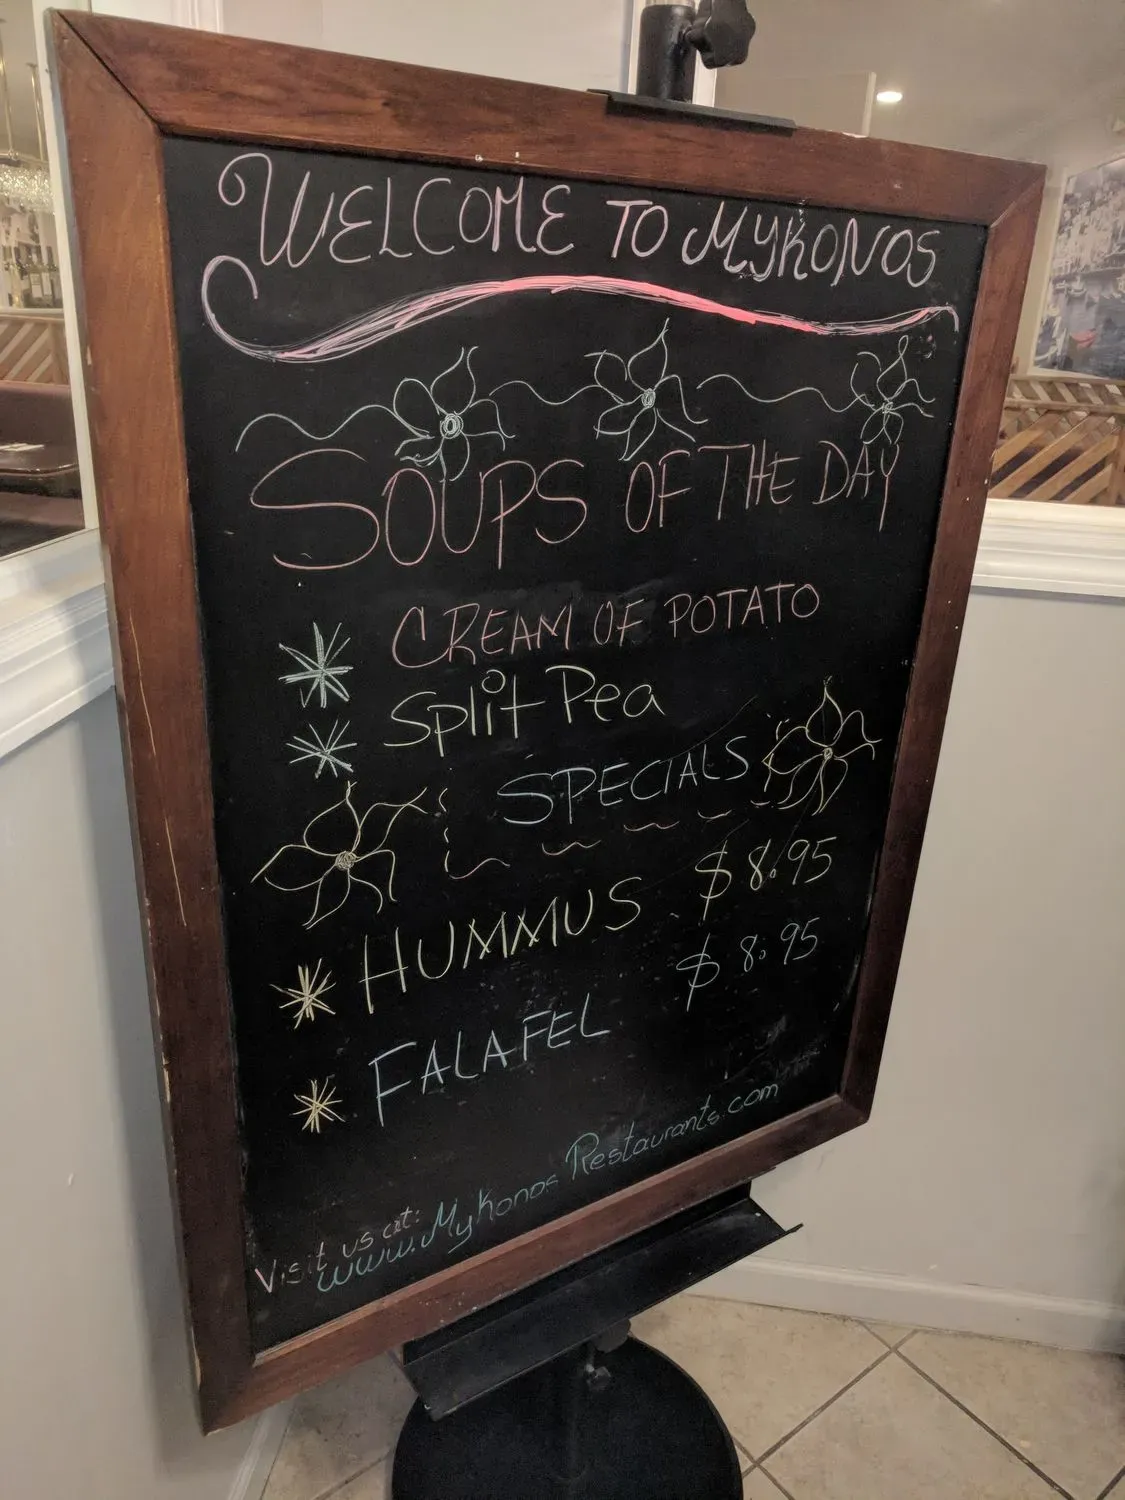 WELCOME TO MYKONOS
SOUPS OF THE DAY
CREAM OF POTATO
Split Pea
SPECIALS
HUMMUS $8.95
FALAFEL $8.95
Visit us at:
www.Mykonos Restaurants.com